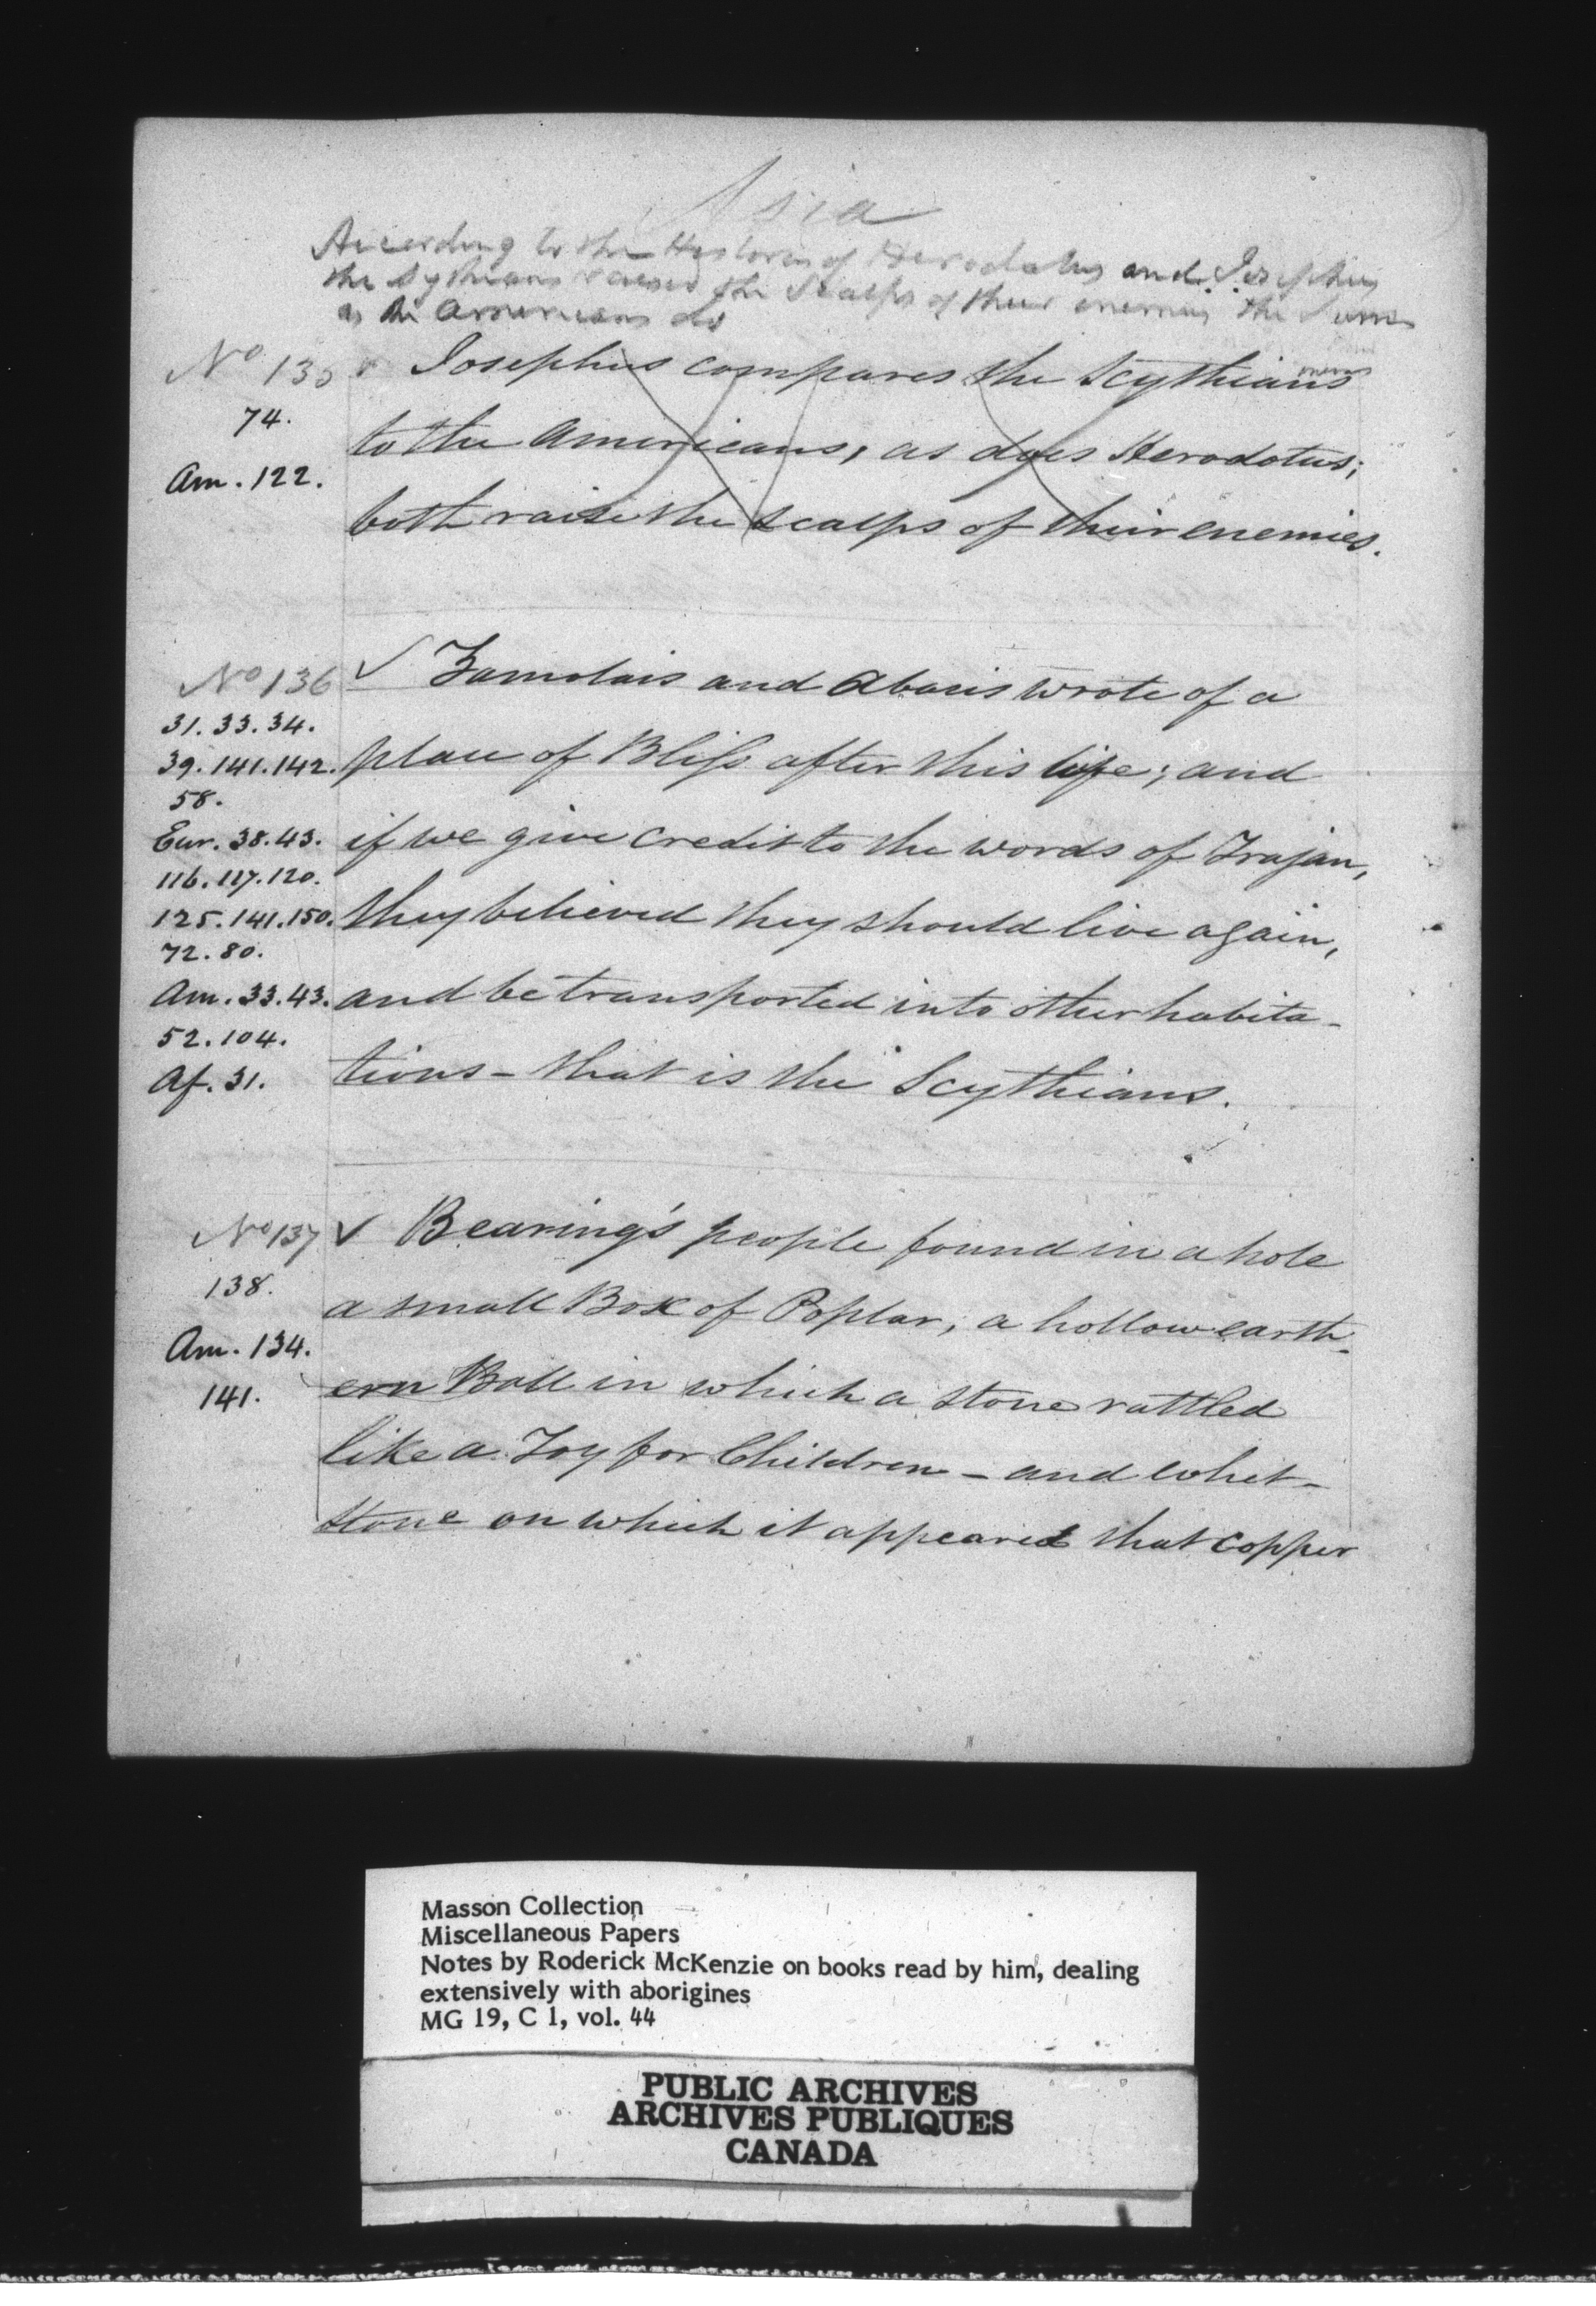 Asia
According to the Histories of Herodotus and Josephus
the Sythians raised the Scalps of their enemies the Same
as the Americans do
No 135 Josephus compares the Scythians
74. to the Americans, as does Herodotus;
Am. 122. both raise the scalps of their enemies.
No 136 ✓ Zamolais and Abaris wrote of a
31. 33. 34.
39. 141. 142. place of Bliss after this life; and
58.
Eur. 38. 43. if we give credit to the words of Trajan,
116. 117. 120.
125. 141. 150. they believed they should live again,
72. 80.
Am. 33. 43. and be transported into other habita-
52. 104.
Af. 31. tions - that is the Scythians.
No 137 ✓ Bearing's people found in a hole
138. a small Box of Poplar, a hollow earth-
Am. 134.
141. ern Ball in which a stone rattled
like a Toy for Children - and whet-
stone on which it appeared that copper
Masson Collection
Miscellaneous Papers
Notes by Roderick McKenzie on books read by him, dealing
extensively with aborigines
MG 19, C 1, vol. 44
PUBLIC ARCHIVES
ARCHIVES PUBLIQUES
CANADA